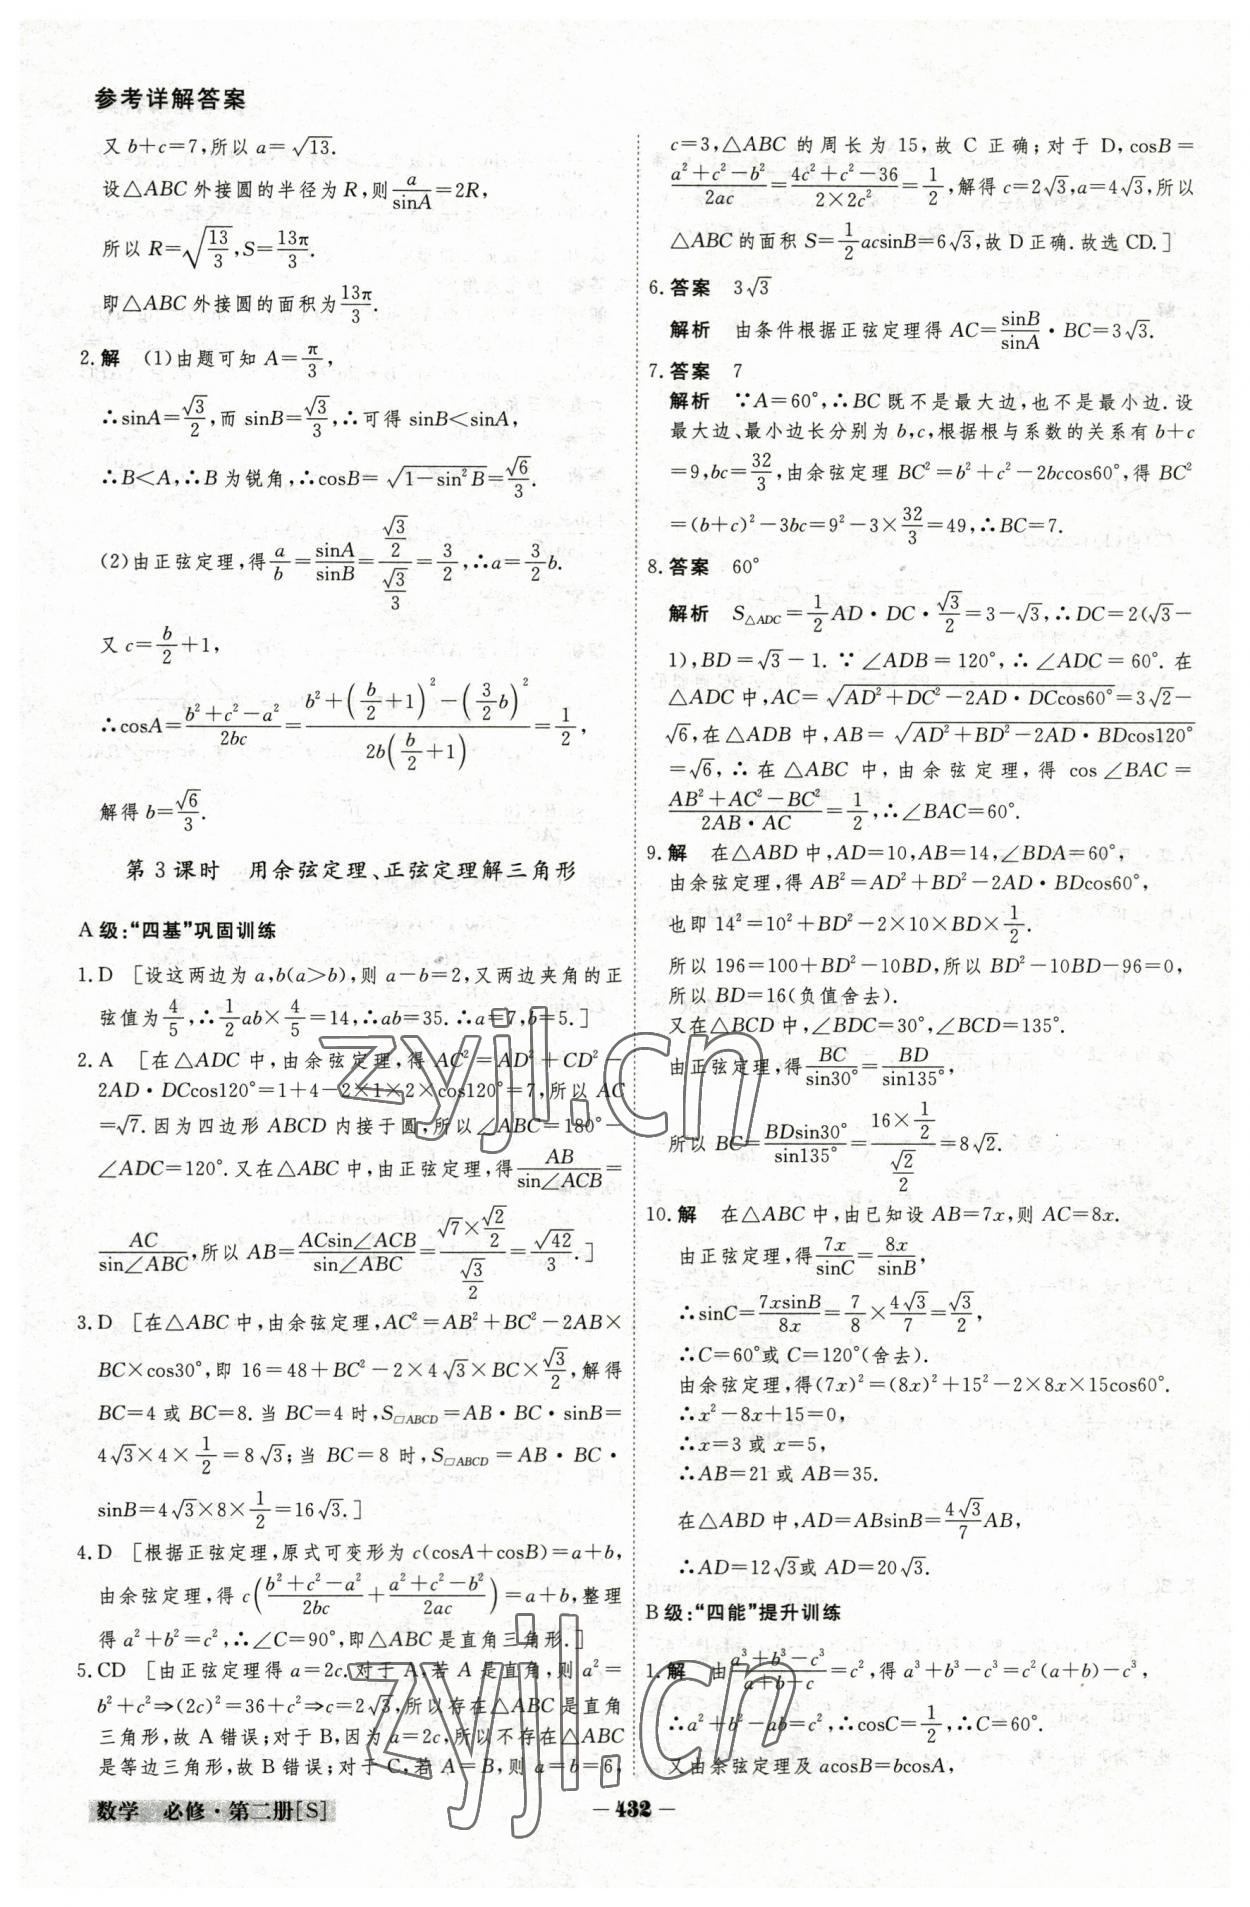 参考详解答案
又 b+c=7,所以 a=√13.
设△ABC 外接圆的半径为 R,则 a/sinA=2R,
所以 R=√(13/3),S=13π/3.
即△ABC 外接圆的面积为 13π/3.
2.解 (1)由题可知 A=π/3,
∴sinA=√3/2,而 sinB=√3/3,∴可得 sinB<sinA,
∴B<A,∴B 为锐角,∴cosB=√(1-sin²B)=√6/3.
(2)由正弦定理,得 a/b=sinA/sinB=(√3/2)/(√3/3)=3/2,∴a=3/2 b.
又 c=b/2+1,
∴cosA=(b²+c²-a²)/2bc=(b²+(b/2+1)²-(3/2 b)²)/(2b(b/2+1))=1/2,
解得 b=√6/3.
第 3 课时 用余弦定理、正弦定理解三角形
A 级:“四基”巩固训练
1.D [设这两边为 a,b(a>b),则 a-b=2,又两边夹角的正
弦值为 4/5,∴1/2 ab×4/5=14,∴ab=35.∴a=7,b=5.]
2.A [在△ADC 中,由余弦定理,得 AC²=AD²+CD²-
2AD·DCcos120°=1+4-2×1×2×cos120°=7,所以 AC
=√7.因为四边形 ABCD 内接于圆,所以∠ABC=180°-
∠ADC=120°.又在△ABC 中,由正弦定理,得 AB/sin∠ACB=
AC/sin∠ABC,所以 AB=ACsin∠ACB/sin∠ABC=(√7×√2/2)/(√3/2)=√42/3.]
3.D [在△ABC 中,由余弦定理,AC²=AB²+BC²-2AB×
BC×cos30°,即 16=48+BC²-2×4√3×BC×√3/2,解得
BC=4 或 BC=8.当 BC=4 时,S□ABCD=AB·BC·sinB=
4√3×4×1/2=8√3;当 BC=8 时,S□ABCD=AB·BC·
sinB=4√3×8×1/2=16√3.]
4.D [根据正弦定理,原式可变形为 c(cosA+cosB)=a+b,
由余弦定理,得 c((b²+c²-a²)/2bc+(a²+c²-b²)/2ac)=a+b,整理
得 a²+b²=c²,∴∠C=90°,即△ABC 是直角三角形.]
5.CD [由正弦定理得 a=2c.对于 A,若 A 是直角,则 a²=
b²+c²⇒(2c)²=36+c²⇒c=2√3,所以存在△ABC 是直角
三角形,故 A 错误;对于 B,因为 a=2c,所以不存在△ABC
是等边三角形,故 B 错误;对于 C,若 A=B,则 a=b=6,
c=3,△ABC 的周长为 15,故 C 正确;对于 D,cosB=
(a²+c²-b²)/2ac=(4c²+c²-36)/(2×2c²)=1/2,解得 c=2√3,a=4√3,所以
△ABC 的面积 S=1/2 acsinB=6√3,故 D 正确.故选 CD.]
6.答案 3√3
解析 由条件根据正弦定理得 AC=sinB/sinA·BC=3√3.
7.答案 7
解析 ∵A=60°,∴BC 既不是最大边,也不是最小边.设
最大边、最小边长分别为 b,c,根据根与系数的关系有 b+c
=9,bc=32/3,由余弦定理 BC²=b²+c²-2bccos60°,得 BC²
=(b+c)²-3bc=9²-3×32/3=49,∴BC=7.
8.答案 60°
解析 S△ADC=1/2 AD·DC·√3/2=3-√3,∴DC=2(√3-
1),BD=√3-1.∵∠ADB=120°,∴∠ADC=60°.在
△ADC 中,AC=√(AD²+DC²-2AD·DCcos60°)=3√2-
√6,在△ADB 中,AB=√(AD²+BD²-2AD·BDcos120°)
=√6,∴在△ABC 中,由余弦定理,得 cos∠BAC=
(AB²+AC²-BC²)/(2AB·AC)=1/2,∴∠BAC=60°.
9.解 在△ABD 中,AD=10,AB=14,∠BDA=60°,
由余弦定理,得 AB²=AD²+BD²-2AD·BDcos60°,
也即 14²=10²+BD²-2×10×BD×1/2.
所以 196=100+BD²-10BD,所以 BD²-10BD-96=0,
所以 BD=16(负值舍去).
又在△BCD 中,∠BDC=30°,∠BCD=135°.
由正弦定理,得 BC/sin30°=BD/sin135°,
所以 BC=BDsin30°/sin135°=(16×1/2)/(√2/2)=8√2.
10.解 在△ABC 中,由已知设 AB=7x,则 AC=8x.
由正弦定理,得 7x/sinC=8x/sinB,
∴sinC=7xsinB/8x=7/8×4√3/7=√3/2,
∴C=60°或 C=120°(舍去).
由余弦定理,得(7x)²=(8x)²+15²-2×8x×15cos60°.
∴x²-8x+15=0,
∴x=3 或 x=5,
∴AB=21 或 AB=35.
在△ABD 中,AD=ABsinB=4√3/7 AB,
∴AD=12√3或 AD=20√3.
B 级:“四能”提升训练
1.解 由(a³+b³-c³)/(a+b-c)=c²,得 a³+b³-c³=c²(a+b)-c³,
∴a²+b²-ab=c²,∴cosC=1/2,∴C=60°.
又由余弦定理及 acosB=bcosA,
数学 必修·第二册[S]
－432－
zyjl.cn
zyjl.cn